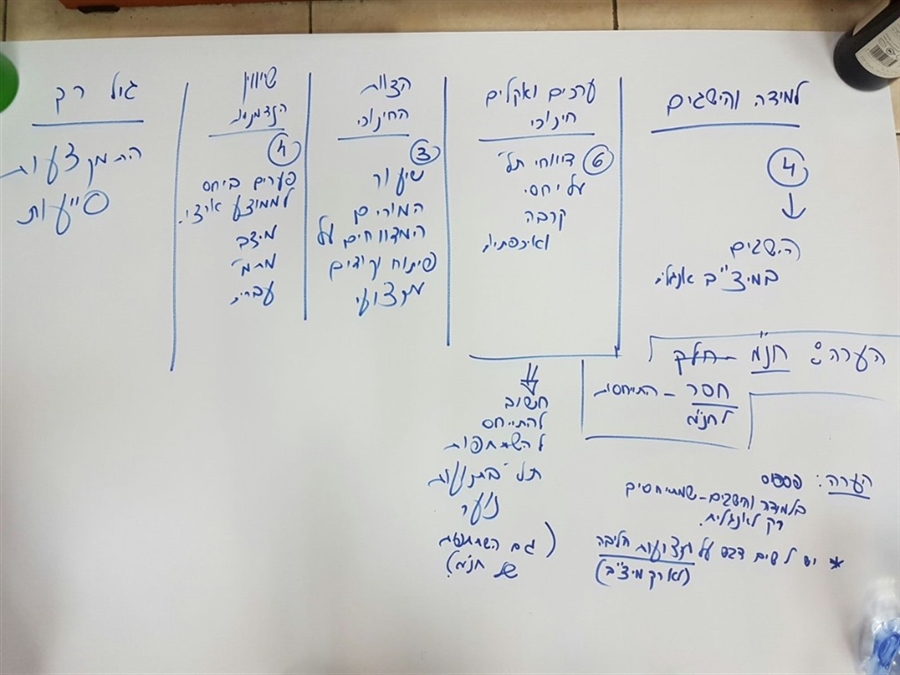 למידה והישגים
4
הישגים
במיצ"ב אנגלי
הערה: חנ"מ - חלק
חסר - התייחסות
לחנ"מ
הערה: פספוס
בלמידה והישגים - שמתייחסים
רק לאנגלית.
* יש לשים דגש על מקצועות הליבה
(לא רק מיצ"ב)
ערכים ואקלים
חינוכי
6
דיווחי תל'
על יחסי
קרבה
ואכפתיות
חשוב
להתייחס
להשתתפות
תל' בתנועות
נוער
(גם השתתפות
של חנ"מ)
הצוות
החינוכי
3
שיעור
המורים
המדווחים על
פיתוח קידום
מקצועי
שיוויון
הזדמנויות
4
פערים ביחס
לממוצע ארצי.
מיצב
מתמ'
עברית
גיל רך
התמקצעות
סייעות